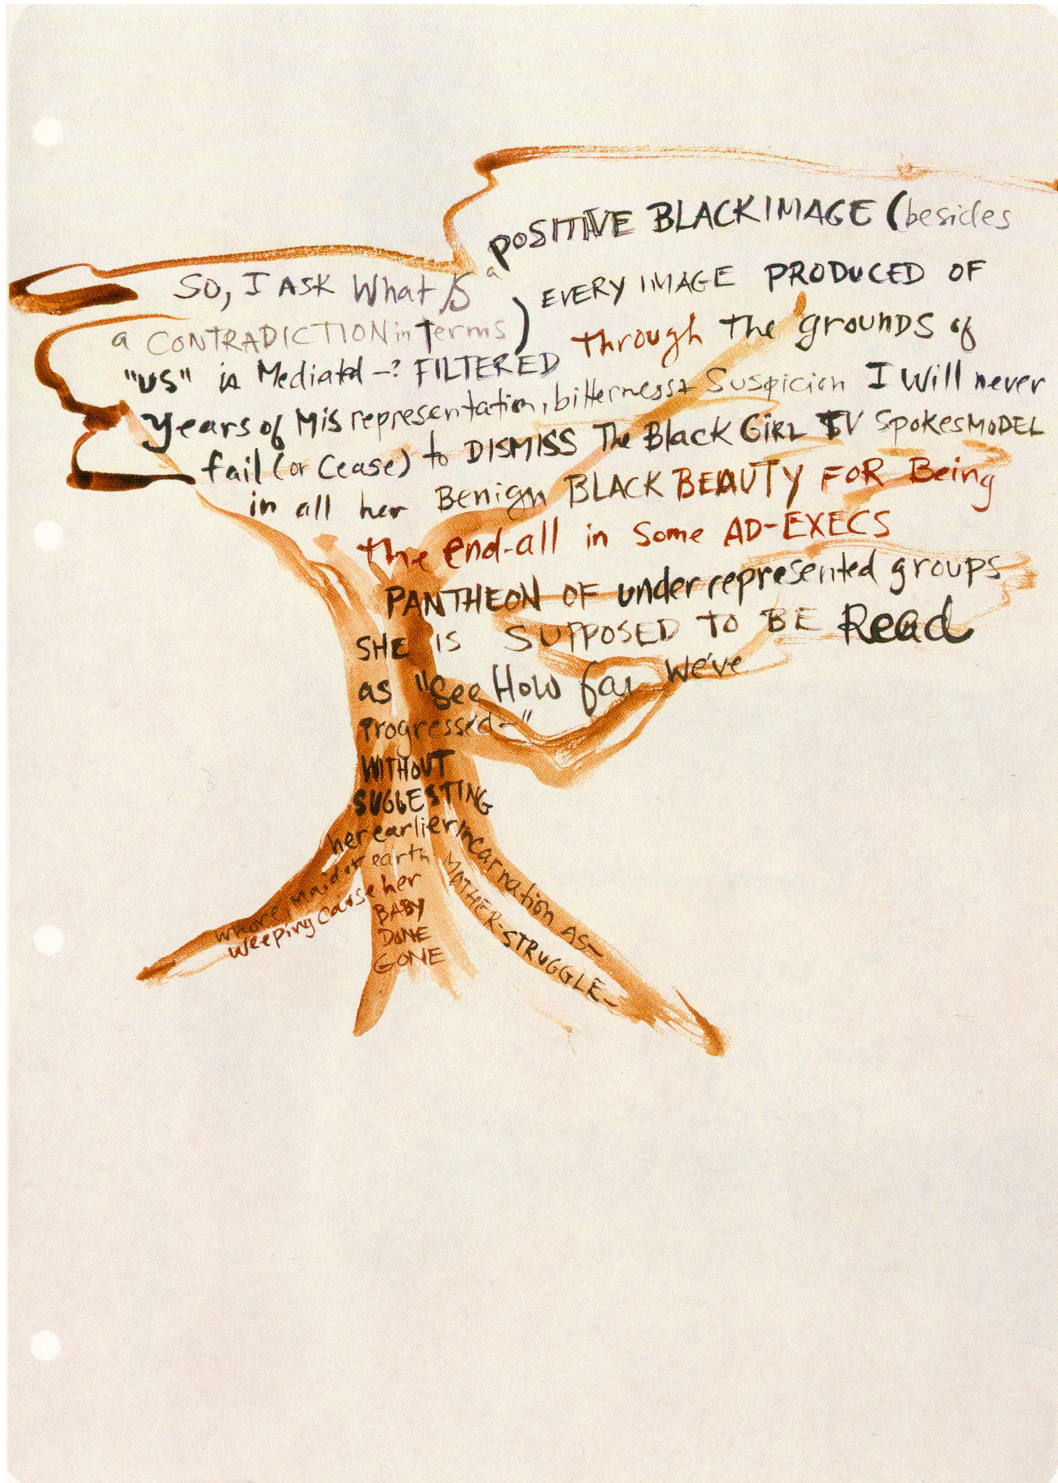 SO, I ASK What IS a POSITIVE BLACK IMAGE (besides
a CONTRADICTION in Terms) EVERY IMAGE PRODUCED OF
"US" is Mediated -? FILTERED through The grounds of
years of Misrepresentation, bitterness & Suspicion I Will never
fail (or Cease) to DISMISS The Black GiRL TV SpokesMODEL
in all her Benign BLACK BEAUTY FOR Being
the end-all in Some AD-EXECS
PANTHEON OF underrepresented groups
SHE IS SUPPOSED TO BE Read
as "See How far We've
progressed-"
WITHOUT
SUGGESTING
her earlier incarnation AS-
whore, maid or earth MOTHER-STRUGGLE-
weeping cause her
BABY
DONE
GONE